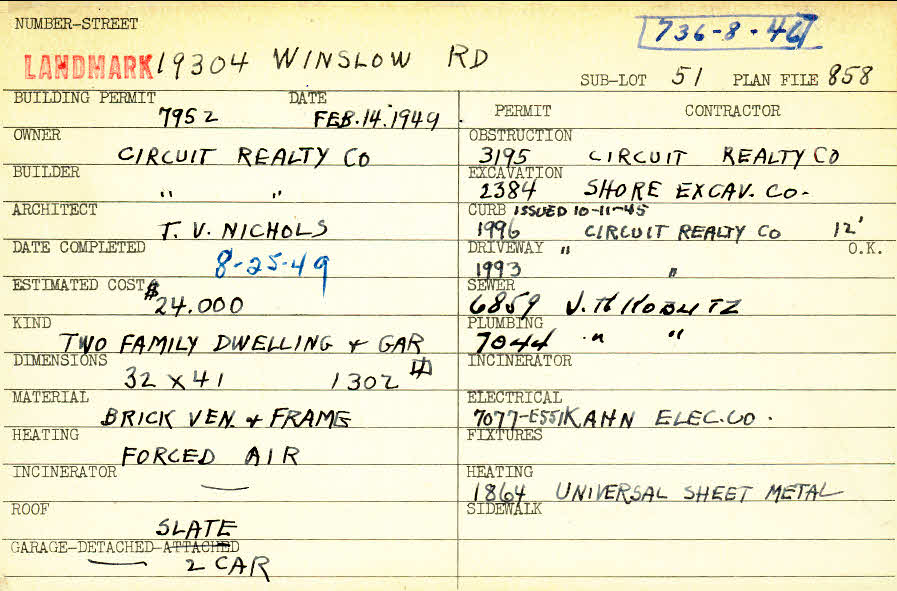 NUMBER-STREET
736-8-46
LANDMARK 19304 WINSLOW RD
SUB-LOT 51 PLAN FILE 858
BUILDING PERMIT DATE
7952 FEB.14.1949.
OWNER
CIRCUIT REALTY CO
BUILDER
" "
ARCHITECT
T. V. NICHOLS
DATE COMPLETED
8-25-49
ESTIMATED COST
$24.000
KIND
TWO FAMILY DWELLING + GAR
DIMENSIONS
32 X 41 1302 #
MATERIAL
BRICK VEN. + FRAME
HEATING
FORCED AIR
INCINERATOR
—
ROOF
SLATE
GARAGE-DETACHED-ATTACHED
— 2 CAR
PERMIT CONTRACTOR
OBSTRUCTION
3195 CIRCUIT REALTY CO
EXCAVATION
2384 SHORE EXCAV. CO.
CURB ISSUED 10-11-45
1996 CIRCUIT REALTY CO 12'
DRIVEWAY " O.K.
1993 "
SEWER
6859
PLUMBING
7044 " "
INCINERATOR
ELECTRICAL
7077-E551 KAHN ELEC.CO.
FIXTURES
HEATING
1864 UNIVERSAL SHEET METAL
SIDEWALK